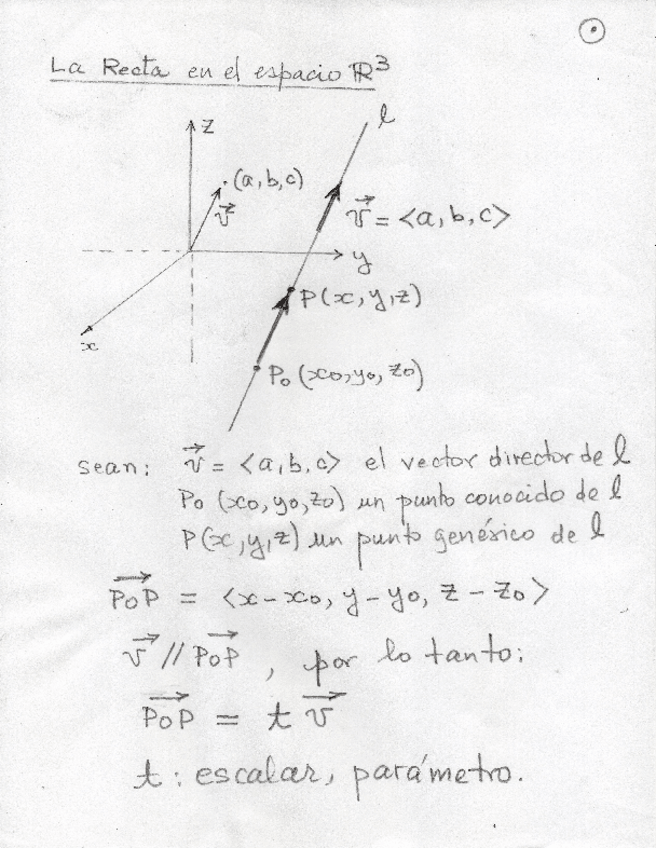 La Recta en el espacio ℝ³
z
l
(a, b, c)
v⃗
v⃗ = <a, b, c>
y
P(x, y, z)
x
P₀ (x₀, y₀, z₀)
sean: v⃗ = <a, b, c> el vector director de l
P₀ (x₀, y₀, z₀) un punto conocido de l
P(x, y, z) un punto genérico de l
P₀P⃗ = <x-x₀, y-y₀, z-z₀>
v⃗ // P₀P⃗, por lo tanto:
P₀P⃗ = t v⃗
t: escalar, parámetro.